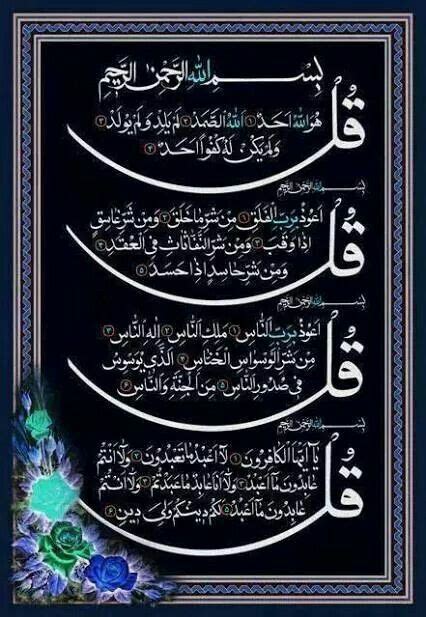 بِسْمِ اللهِ الرَّحْمٰنِ الرَّحِيمِ
قُلْ
هُوَ اللهُ اَحَدٌ ۝١ اَللهُ الصَّمَدُ ۝٢ لَمْ يَلِدْ وَلَمْ يُولَدْ ۝٣
وَلَمْ يَكُنْ لَهُ كُفُوًا اَحَدٌ ۝٤
بِسْمِ اللهِ الرَّحْمٰنِ الرَّحِيمِ
قُلْ
اَعُوذُ بِرَبِّ الْفَلَقِ ۝١ مِنْ شَرِّ مَا خَلَقَ ۝٢ وَمِنْ شَرِّ غَاسِقٍ
اِذَا وَقَبَ ۝٣ وَمِنْ شَرِّ النَّفَّاثَاتِ فِي الْعُقَدِ ۝٤
وَمِنْ شَرِّ حَاسِدٍ اِذَا حَسَدَ ۝٥
بِسْمِ اللهِ الرَّحْمٰنِ الرَّحِيمِ
قُلْ
اَعُوذُ بِرَبِّ النَّاسِ ۝١ مَلِكِ النَّاسِ ۝٢ اِلٰهِ النَّاسِ ۝٣
مِنْ شَرِّ الْوَسْوَاسِ الْخَنَّاسِ ۝٤ اَلَّذِي يُوَسْوِسُ
فِي صُدُورِ النَّاسِ ۝٥ مِنَ الْجِنَّةِ وَالنَّاسِ ۝٦
بِسْمِ اللهِ الرَّحْمٰنِ الرَّحِيمِ
قُلْ
يَا اَيُّهَا الْكَافِرُونَ ۝١ لَا اَعْبُدُ مَا تَعْبُدُونَ ۝٢ وَلَا اَنْتُمْ
عَابِدُونَ مَا اَعْبُدُ ۝٣ وَلَا اَنَا عَابِدٌ مَا عَبَدْتُمْ ۝٤ وَلَا اَنْتُمْ
عَابِدُونَ مَا اَعْبُدُ ۝٥ لَكُمْ دِينُكُمْ وَلِيَ دِينِ ۝٦